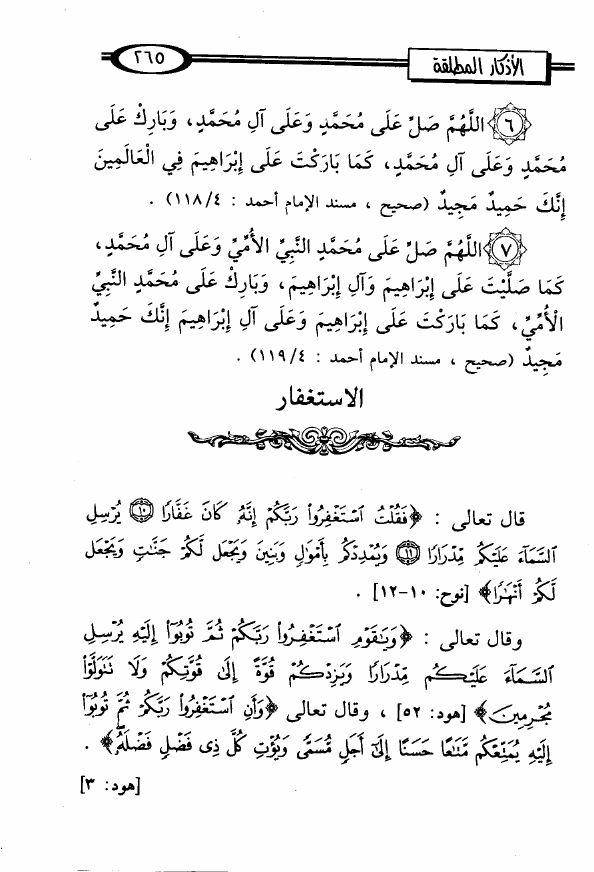 الأذكار المطلقة
٢٦٥
٦ اللَّهُمَّ صَلِّ عَلَى مُحَمَّدٍ وَعَلَى آلِ مُحَمَّدٍ، وَبَارِكْ عَلَى
مُحَمَّدٍ وَعَلَى آلِ مُحَمَّدٍ، كَمَا بَارَكْتَ عَلَى إِبْرَاهِيمَ فِي الْعَالَمِينَ
إِنَّكَ حَمِيدٌ مَجِيدٌ (صحيح ، مسند الإمام أحمد : ١١٨/٤) .
٧ اللَّهُمَّ صَلِّ عَلَى مُحَمَّدٍ النَّبِيِّ الأُمِّيِّ وَعَلَى آلِ مُحَمَّدٍ،
كَمَا صَلَّيْتَ عَلَى إِبْرَاهِيمَ وَآلِ إِبْرَاهِيمَ، وَبَارِكْ عَلَى مُحَمَّدٍ النَّبِيِّ
الْأُمِّيِّ، كَمَا بَارَكْتَ عَلَى إِبْرَاهِيمَ وَعَلَى آلِ إِبْرَاهِيمَ إِنَّكَ حَمِيدٌ
مَجِيدٌ (صحيح ، مسند الإمام أحمد : ١١٩/٤) .
الاستغفار
قال تعالى : ﴿فَقُلْتُ ٱسْتَغْفِرُوا۟ رَبَّكُمْ إِنَّهُۥ كَانَ غَفَّارًا ١٠ يُرْسِلِ
ٱلسَّمَآءَ عَلَيْكُم مِّدْرَارًا ١١ وَيُمْدِدْكُم بِأَمْوَٰلٍ وَبَنِينَ وَيَجْعَل لَّكُمْ جَنَّٰتٍ وَيَجْعَل
لَّكُمْ أَنْهَٰرًا﴾ [نوح: ١٠-١٢] .
وقال تعالى : ﴿وَيَٰقَوْمِ ٱسْتَغْفِرُوا۟ رَبَّكُمْ ثُمَّ تُوبُوٓا۟ إِلَيْهِ يُرْسِلِ
ٱلسَّمَآءَ عَلَيْكُم مِّدْرَارًا وَيَزِدْكُمْ قُوَّةً إِلَىٰ قُوَّتِكُمْ وَلَا تَتَوَلَّوْا۟
مُجْرِمِينَ﴾ [هود: ٥٢] ، وقال تعالى ﴿وَأَنِ ٱسْتَغْفِرُوا۟ رَبَّكُمْ ثُمَّ تُوبُوٓا۟
إِلَيْهِ يُمَتِّعْكُم مَّتَٰعًا حَسَنًا إِلَىٰٓ أَجَلٍ مُّسَمًّى وَيُؤْتِ كُلَّ ذِى فَضْلٍ فَضْلَهُۥ﴾ .
[هود: ٣]